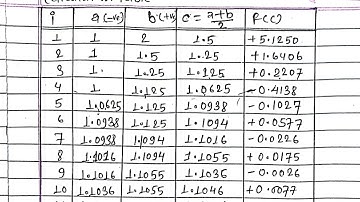 i a (-ve) b (+ve) c = a+b/2 F(c)
1 1 2 1.5 +5.1250
2 1 1.5 1.25 +1.6406
3 1. 1.25 1.125 +0.2207
4 1 1.125 1.0625 -0.4138
5 1.0625 1.125 1.0938 -0.1027
6 1.0938 1.125 1.1094 +0.0577
7 1.0938 1.1094 1.1016 -0.0226
8 1.1016 1.1094 1.1055 +0.0175
9 1.1016 1.1055 1.1036 -0.0026
10 1.1036 1.1055 1.1046 +0.0077